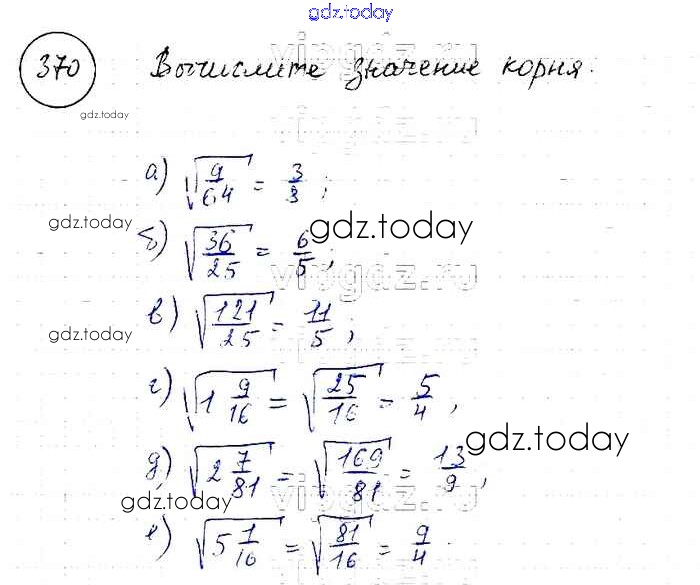 gdz.today
vipgdz.ru
370 Вычислите значение корня.
gdz.today
а) √(9/64) = 3/3 ;
gdz.today
б) √(36/25) = 6/5 ;
gdz.today
vipgdz.ru
в) √(121/25) = 11/5 ;
gdz.today
г) √(1 9/16) = √(25/16) = 5/4 ,
gdz.today
д) √(2 7/81) = √(169/81) = 13/9 ,
vipgdz.ru
gdz.today
е) √(5 1/16) = √(81/16) = 9/4 .